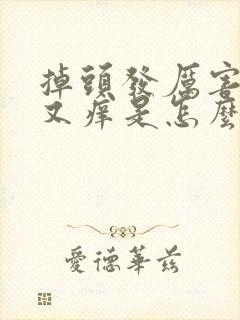 掉頭發厲害
又痒是怎麼
愛德華茲